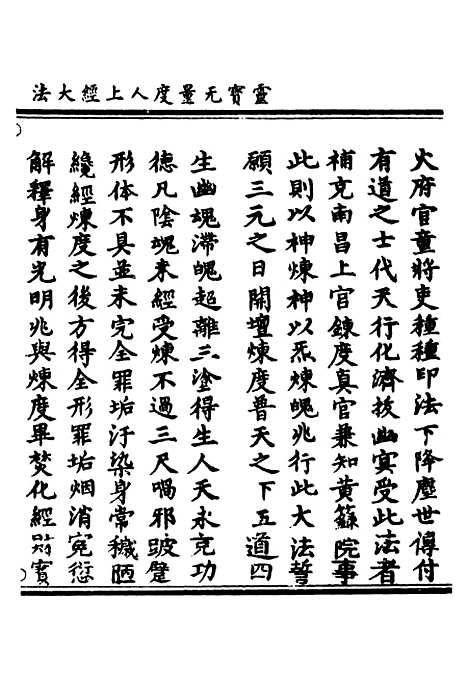 靈寳无量度人上經大法
火府官童將吏種種印法下降塵世傳付
有道之士代天行化濟拔幽冥受此法者
補充南昌上官錬度真官兼知黄籙院事
此則以神煉神以炁煉魄兆行此大法誓
願三元之日開壇煉度普天之下五道四
生幽魂滯魄超離三塗得生人天永充功
德凡陰魂未經受煉不過三尺喎邪跛躄
形体不具並未完全罪垢汙染身常穢陋
纔經煉度之後方得全形罪垢烟消寃愆
解釋身有光明兆與煉度畢焚化經財寳